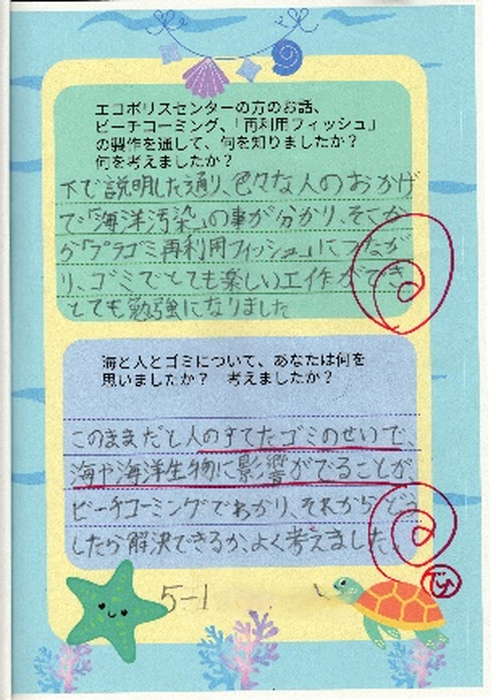 エコポリスセンターの方のお話、
ビーチコーミング、「再利用フィッシュ」
の製作を通して、何を知りましたか?
何を考えましたか?
下で説明した通り、色々な人のおかげ
で「海洋汚染」の事が分かり、そこか
ら「プラゴミ再利用フィッシュ」につなが
り、ゴミでとても楽しい工作ができ
とても勉強になりました
海と人とゴミについて、あなたは何を
思いましたか? 考えましたか?
このままだと人のすてたゴミのせいで、
海や海洋生物に影響がでることが
ビーチコーミングでわかり、それからどう
したら解決できるか、よく考えました。
5-1